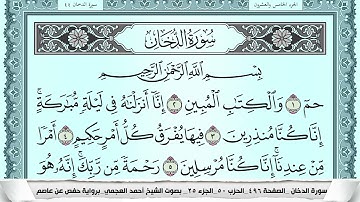 الجزء الخامس والعشرون
سورة الدخان ٤٤
سُورَةُ الدُّخَانِ
بِسْمِ اللَّهِ الرَّحْمَٰنِ الرَّحِيمِ
حمٓ ١ وَالْكِتَابِ الْمُبِينِ ٢ إِنَّا أَنزَلْنَاهُ فِي لَيْلَةٍ مُّبَارَكَةٍ ۚ
إِنَّا كُنَّا مُنذِرِينَ ٣ فِيهَا يُفْرَقُ كُلُّ أَمْرٍ حَكِيمٍ ٤ أَمْرًا
مِّنْ عِندِنَا ۚ إِنَّا كُنَّا مُرْسِلِينَ ٥ رَحْمَةً مِّن رَّبِّكَ ۚ إِنَّهُ هُوَ
سورة الدخان _الصفحة ٤٩٦_ الحزب ٥٠_ الجزء ٢٥_ بصوت الشيخ أحمد العجمي_ برواية حفص عن عاصم